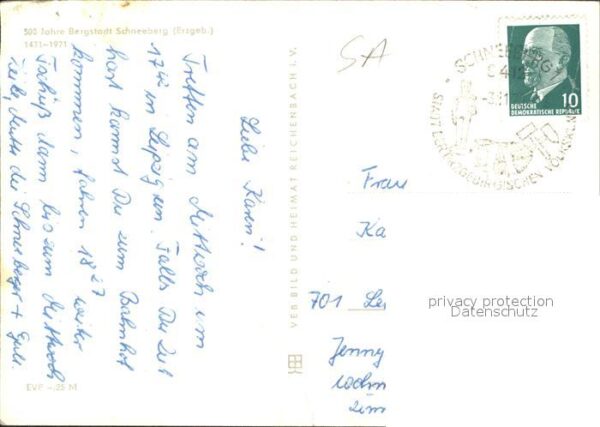 500 Jahre Bergstadt Schneeberg (Erzgeb.)
1471-1971
Liebe Karin!
Treffen am Mittwoch um
17⁴² in Leipzig ein. Falls Du Zeit
hast kannst Du zum Bahnhof
kommen, fahren 18²⁷ weiter
Tschüß dann bis zum Mittwoch
die Schneeberger +
EVP -,25 M
VEB BILD UND HEIMAT REICHENBACH I. V.
SA
SCHNEEBERG
STADT ERZGEBIRGISCHEN
DEUTSCHE
DEMOKRATISCHE REPUBLIK
10
Frau
Ka
701 Le
Jenny
wohn
zim
privacy protection
Datenschutz